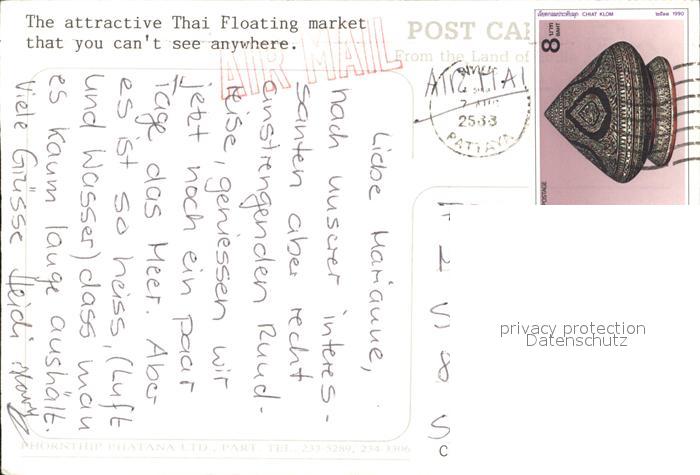 The attractive Thai Floating market
that you can't see anywhere.
POST CA
From the Land of
AIR MAIL
AIR MAIL
PATTAYA
2533
CHIAT KLOM
๒๕๓๓ 1990
8 บาท
BAHT
POSTAGE
Liebe Marianne,
nach unserer interes-
santen aber recht
anstrengenden Rund-
reise, geniessen wir
jetzt noch ein paar
Tage das Meer. Aber
es ist so heiss, (Luft
und Wasser) dass man
es kaum lange aushält.
Viele Grüsse Heidi
PHORNTHIP PHATANA LTD., PART. TEL. 233-5289, 234-3306
privacy protection
Datenschutz
C